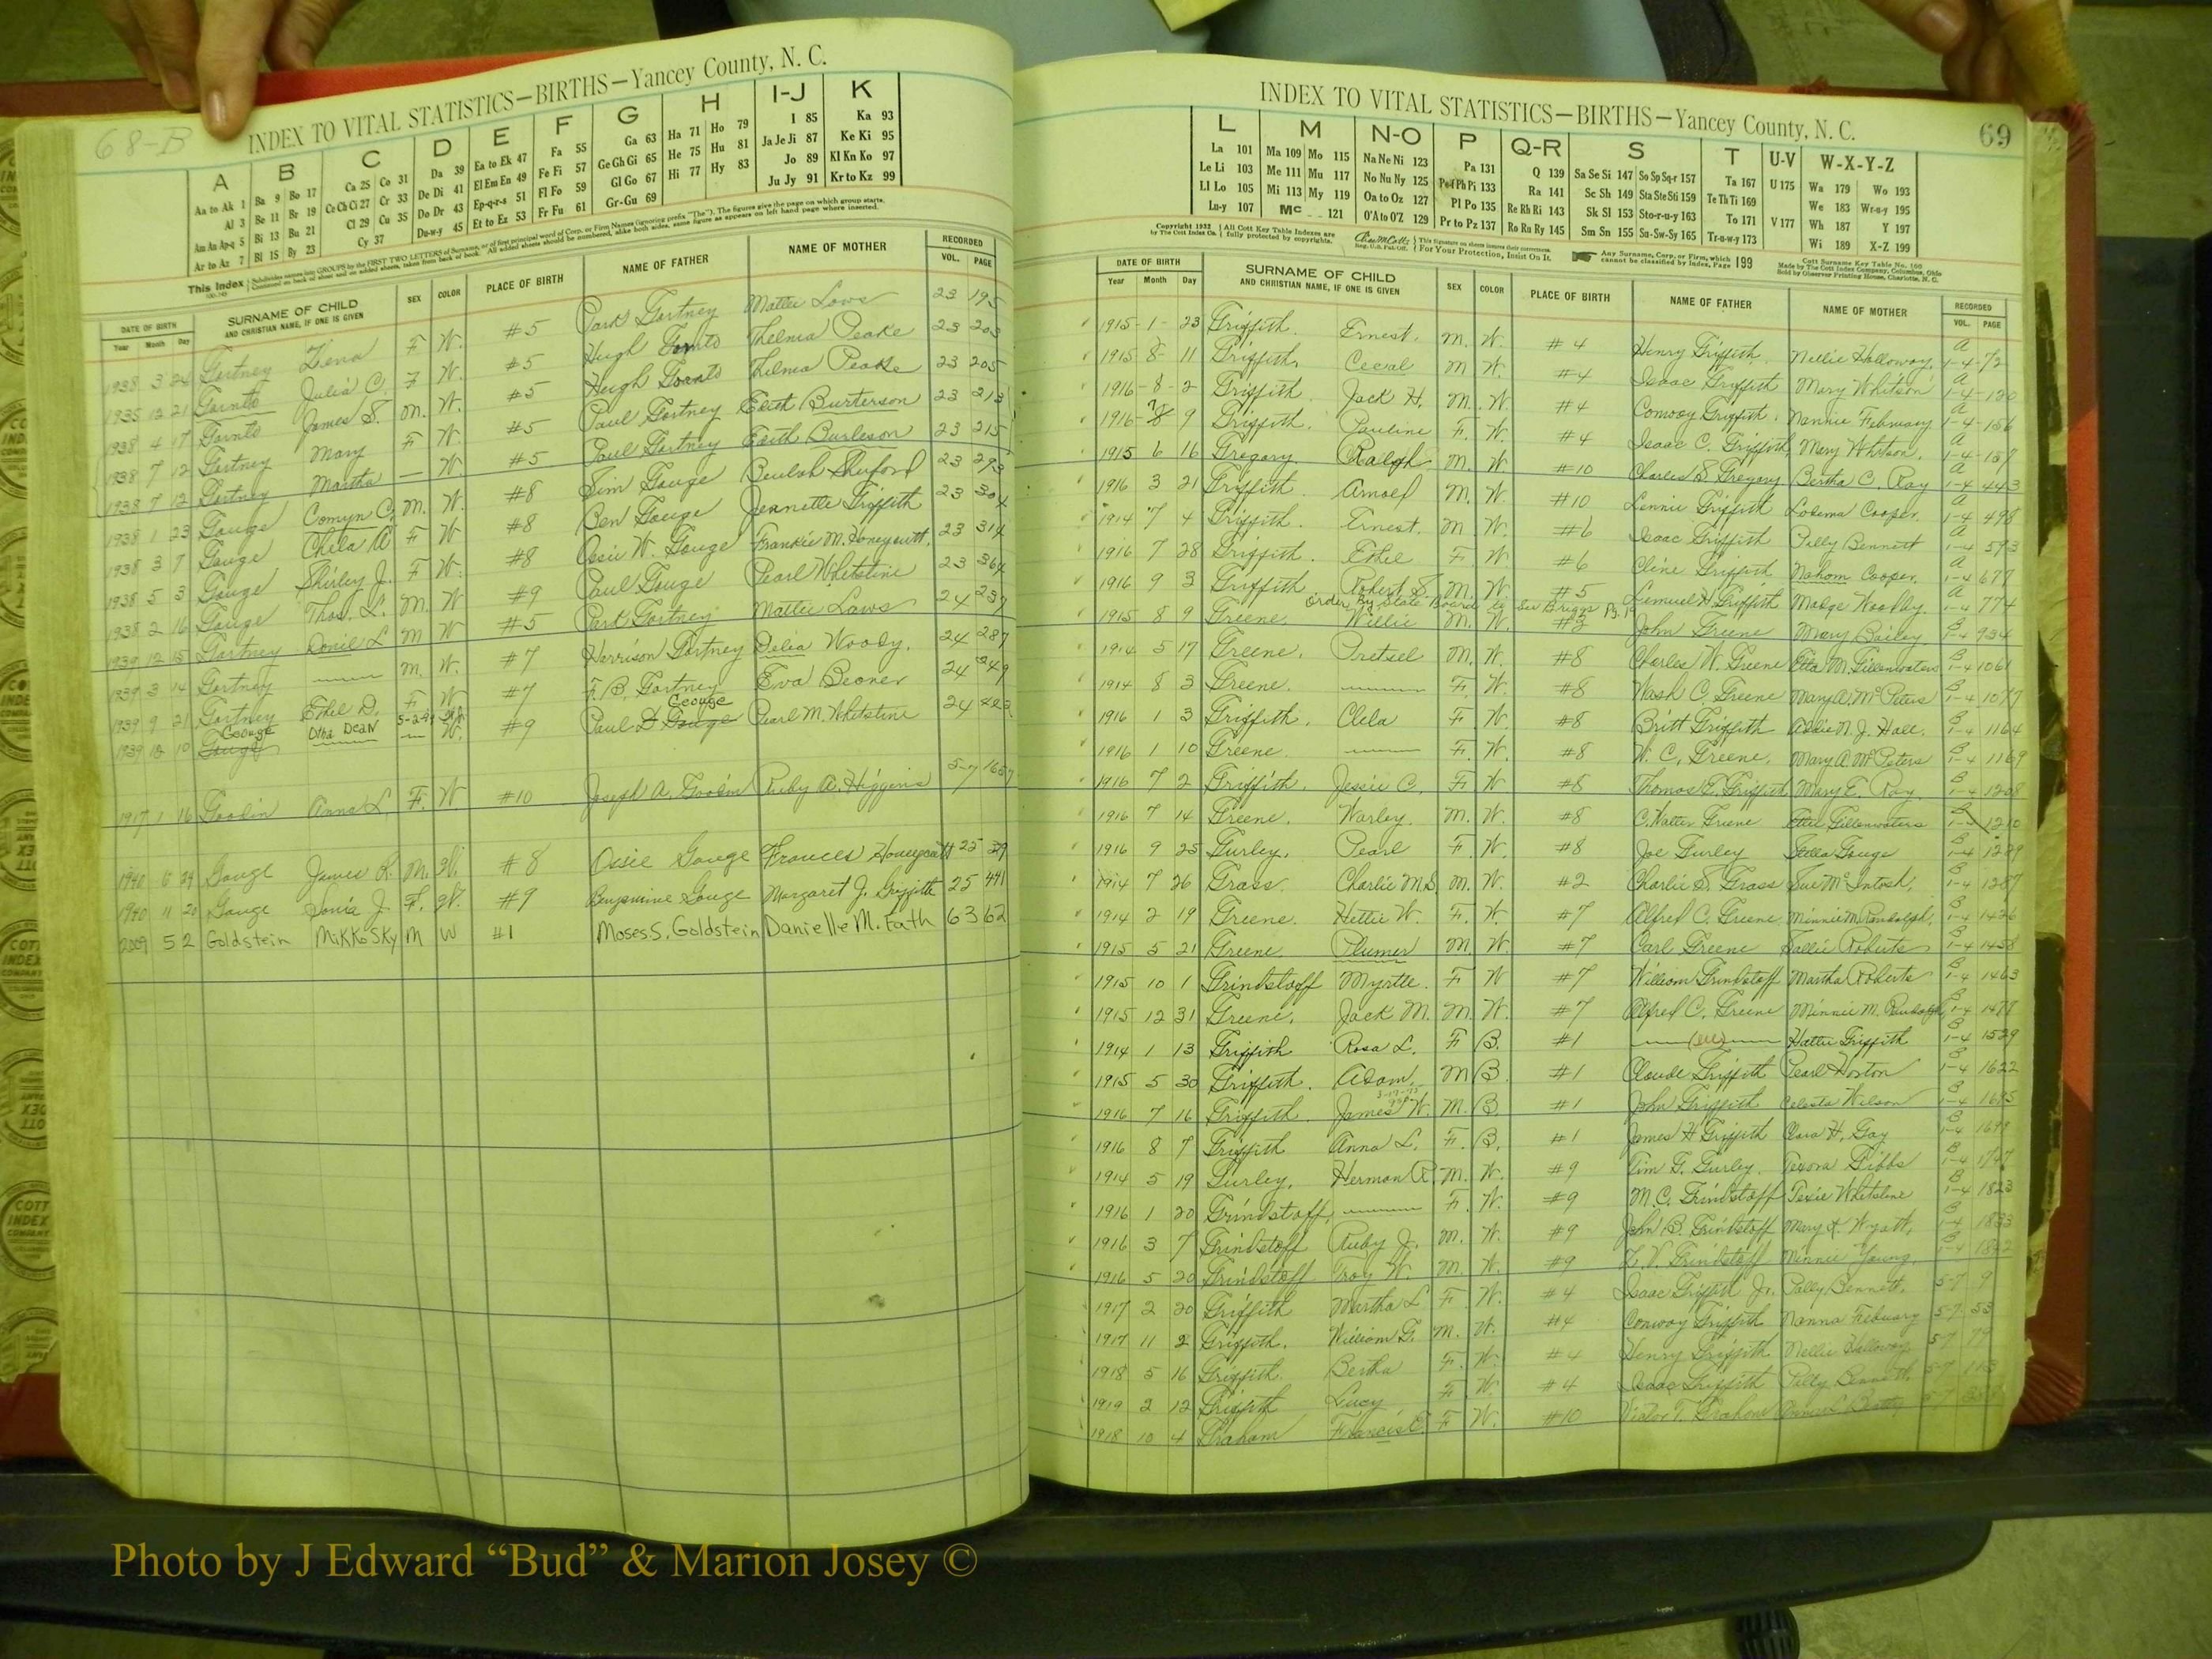 68-B
INDEX TO VITAL STATISTICS—BIRTHS—Yancey County, N. C.
A B C D E F G H I-J K
Aa to Ak 1 Ba 9 Bo 17 Ca 25 Co 31 Da 39 Ea to Ek 47 Fa 55 Ga 63 Ha 71 Ho 79 I 85 Ka 93
Al 3 Be 11 Br 19 Ce Ch Ci 27 Cr 33 De Di 41 El Em En 49 Fe Fi 57 Ge Gh Gi 65 He 75 Hu 81 Ja Je Ji 87 Ke Ki 95
Am An Ap-q 5 Bi 13 Bu 21 Cl 29 Cu 35 Do Dr 43 Ep-q-r-s 51 Fl Fo 59 Gl Go 67 Hi 77 Hy 83 Jo 89 Kl Kn Ko 97
Ar to Az 7 Bl 15 By 23 Cy 37 Du-w-y 45 Et to Ez 53 Fr Fu 61 Gr-Gu 69 Ju Jy 91 Kr to Kz 99
This Index
DATE OF BIRTH SURNAME OF CHILD SEX COLOR PLACE OF BIRTH NAME OF FATHER NAME OF MOTHER RECORDED
Year Month Day AND CHRISTIAN NAME, IF ONE IS GIVEN VOL. PAGE
1938 3 24 Gortney Zena F W. #5 Park Gortney Mattie Laws 23 195
1935 12 21 Goanto Julia C. F W. #5 Hugh Thelma Peake 23 203
1938 4 17 James S. M. W. #5 Hugh Thelma Peake 23 205
1938 7 12 Gortney Mary F W. #5 Paul Gortney Edith Burterson 23 213
1938 7 12 Gortney Martha — W. #5 Paul Gortney Edith Burleson 23 215
1938 1 23 Gouge Comyn C. M. W. #8 Sim Gouge Beulah Shuford 23 293
1938 3 7 Gouge F W #8 Ben Gouge Jeannette Griffith 23 304
1938 5 3 Gouge Shirley J. F W. #8 Ossie W. Gouge Frankie M. Honeycutt. 23 314
1938 2 16 Gouge Thos. L. M. W #9 Paul Gouge Pearl Whitstine 23 364
1939 12 15 Gortney M W #5 Park Gortney Mattie Laws 24 237
1939 3 14 Gortney — M. W. #7 Harrison Gortney Delia Woody. 24 287
1939 9 21 Gortney Ethel D. F W #7 F. B. Gortney Eva 24 249
1939 12 10 Gouge George Otha Dean W. #9 Paul D Gouge George Pearl M. Whitstine 24
1917 1 16 Goodin Anna L. F. W #10 Joseph A. Ruby A. Higgins 5-7 1657
1940 6 24 Gouge James R. M. W. #8 Ossie Gouge Frances Honeycutt 25 39
1940 11 20 Gouge Sonia J. F. W. #9 Benjamine Gouge Margaret J. Griffith 25 441
2009 5 2 Goldstein Mikko Sky M W #1 Moses. S. Goldstein Danielle M. Fath 63 62
INDEX TO VITAL STATISTICS—BIRTHS—Yancey County, N. C. 69
L M N-O P Q-R S T U-V W-X-Y-Z
La 101 Ma 109 Mo 115 Na Ne Ni 123 Pa 131 Q 139 Sa Se Si 147 So Sp Sq-r 157 Ta 167 U 175 Wa 179 Wo 193
Le Li 103 Me 111 Mu 117 No Nu Ny 125 Pe-f Ph Pi 133 Ra 141 Sc Sh 149 Sta Ste Sti 159 Te Th Ti 169 We 183 Wr-u-y 195
Ll Lo 105 Mi 113 My 119 Oa to Oz 127 Pl Po 135 Re Rh Ri 143 Sk Sl 153 Sto-r-u-y 163 To 171 V 177 Wh 187 Y 197
Lu-y 107 Mc 121 O'A to O'Z 129 Pr to Pz 137 Ro Ru Ry 145 Sm Sn 155 Su-Sw-Sy 165 Tr-u-w-y 173 Wi 189 X-Z 199
Copyright 1932 by The Cott Index Co. All Cott Key Table Indexes are fully protected by copyrights. For Your Protection, Insist On It. Any Surname, Corp. or Firm, which cannot be classified by Index, Page 199 Cott Surname Key Table No. 160 Made by The Cott Index Company, Columbus, Ohio Sold by Observer Printing House, Charlotte, N. C.
DATE OF BIRTH SURNAME OF CHILD SEX COLOR PLACE OF BIRTH NAME OF FATHER NAME OF MOTHER RECORDED
Year Month Day AND CHRISTIAN NAME, IF ONE IS GIVEN VOL. PAGE
1915 1 23 Griffith. Ernest. M. W. #4 Henry Griffith. Nellie Holloway. A 1-4 72
1915 8 11 Griffith. Cecal M W. #4 Isaac Griffith Mary Whitson A 1-4 120
1916 8 2 Griffith. Jack H. M. W. #4 Conway Griffith. Nannie February A 1-4 156
1916 8 9 Griffith. Pauline F. W. #4 Isaac C. Griffith, Mary Whitson. A 1-4 157
1915 6 16 Gregory Ralph M. W #10 Charles S Gregory Bertha C. Ray A 1-4 443
1916 3 21 Griffith. Arnold M. W. #10 Lennie Griffith Lodema Cooper. A 1-4 498
1914 7 4 Griffith. Ernest. M W. #6 Isaac Griffith Polly Bennett A 1-4 593
1916 7 28 Griffith. Ethel F. W. #6 Cline Griffith Nahom Cooper. A 1-4 677
1916 9 3 Griffith Robert S. M. W. #5 Lemuel H. Griffith Madge Woodby. A 1-4 774
Order By State Board to See Briggs Pg. 19
1915 8 9 Greene Willie M. W. #3 John Greene Mary Bailey B 1-4 934
1914 5 17 Greene. Pretsel M. W. #8 Charles W. Greene Etta M. Gillenwaters B 1-4 1061
1914 8 3 Greene. — F. W. #8 Nash C. Greene Mary A. McPeters B 1-4 1077
1916 1 3 Griffith. Clela F W. #8 Britt Griffith Addie N. J. Hall. B 1-4 1164
1916 1 10 Greene. — F. W. #8 W. C. Greene. Mary A McPeters B 1-4 1169
1916 7 2 Griffith. Jessie C. F W #8 Thomas E. Griffith Mary E. Ray B 1-4 1208
1916 7 14 Greene. Warley. M. W. #8 C. Walter Greene Gillenwaters B 1-4 1210
1916 9 25 Gurley. Pearl F. W. #8 Joe Gurley Stella Gouge B 1-4 1229
1914 7 26 Grass. Charlie McD. M. W. #2 Charlie S. Grass Sue McIntosh. B 1-4 1287
1914 2 19 Greene. Hettie W. F. W #7 Alfred C. Greene Minnie M. Randolph. B 1-4 1426
1915 5 21 Greene. Plumer M. W. #7 Carl Greene Sallie Roberts B 1-4 1458
1915 10 1 Grindstaff Myrtle. F W #7 William Grindstaff Martha Roberts B 1-4 1463
1915 12 31 Greene. Jack M. M. W. #7 Alfred C. Greene Minnie M. Randolph B 1-4 1477
1914 1 13 Griffith Rosa L. F B. #1 —(Ill)— Hattie Griffith B 1-4 1529
1915 5 30 Griffith. Adam. M B. #1 Claude Griffith Pearl Horton B 1-4 1622
1916 7 16 Griffith. James W. M. B. #1 John Griffith Celesta Wilson B 1-4 1675
1916 8 7 Griffith Anna L. F. B. #1 James H Griffith Clara H. Gay B 1-4
1914 5 19 Gurley. Herman R. M. W. #9 Tim F. Gurley. Texora Gibbs B 1-4 1747
1916 1 20 Grindstaff. — F. W. #9 M. C. Grindstaff Texie Whitstine B 1-4 1823
1916 3 7 Grindstaff Ruby J. M. W. #9 John B. Grindstaff Mary Wyatt. B 1-4 1833
1916 5 20 Grindstaff Troy W. M W. #9 Z. V. Grindstaff Minnie Young. B 1-4 1842
1917 2 20 Griffith Martha L F. W. #4 Isaac Griffith Jr. Polly Bennett. 5-7 9
1917 11 2 Griffith. William G. M. W. #4 Conway Griffith Nanna Febuary 5-7 53
1918 5 16 Griffith. Bertha F. W. #4 Henry Griffith Nellie Holloway 5-7 79
1919 2 12 Griffith Lucy F W #4 Isaac Griffith Polly Bennett 5-7
1918 10 4 Graham Francis E. F W. #10 Victor T. Grahame
Photo by J Edward “Bud” & Marion Josey ©